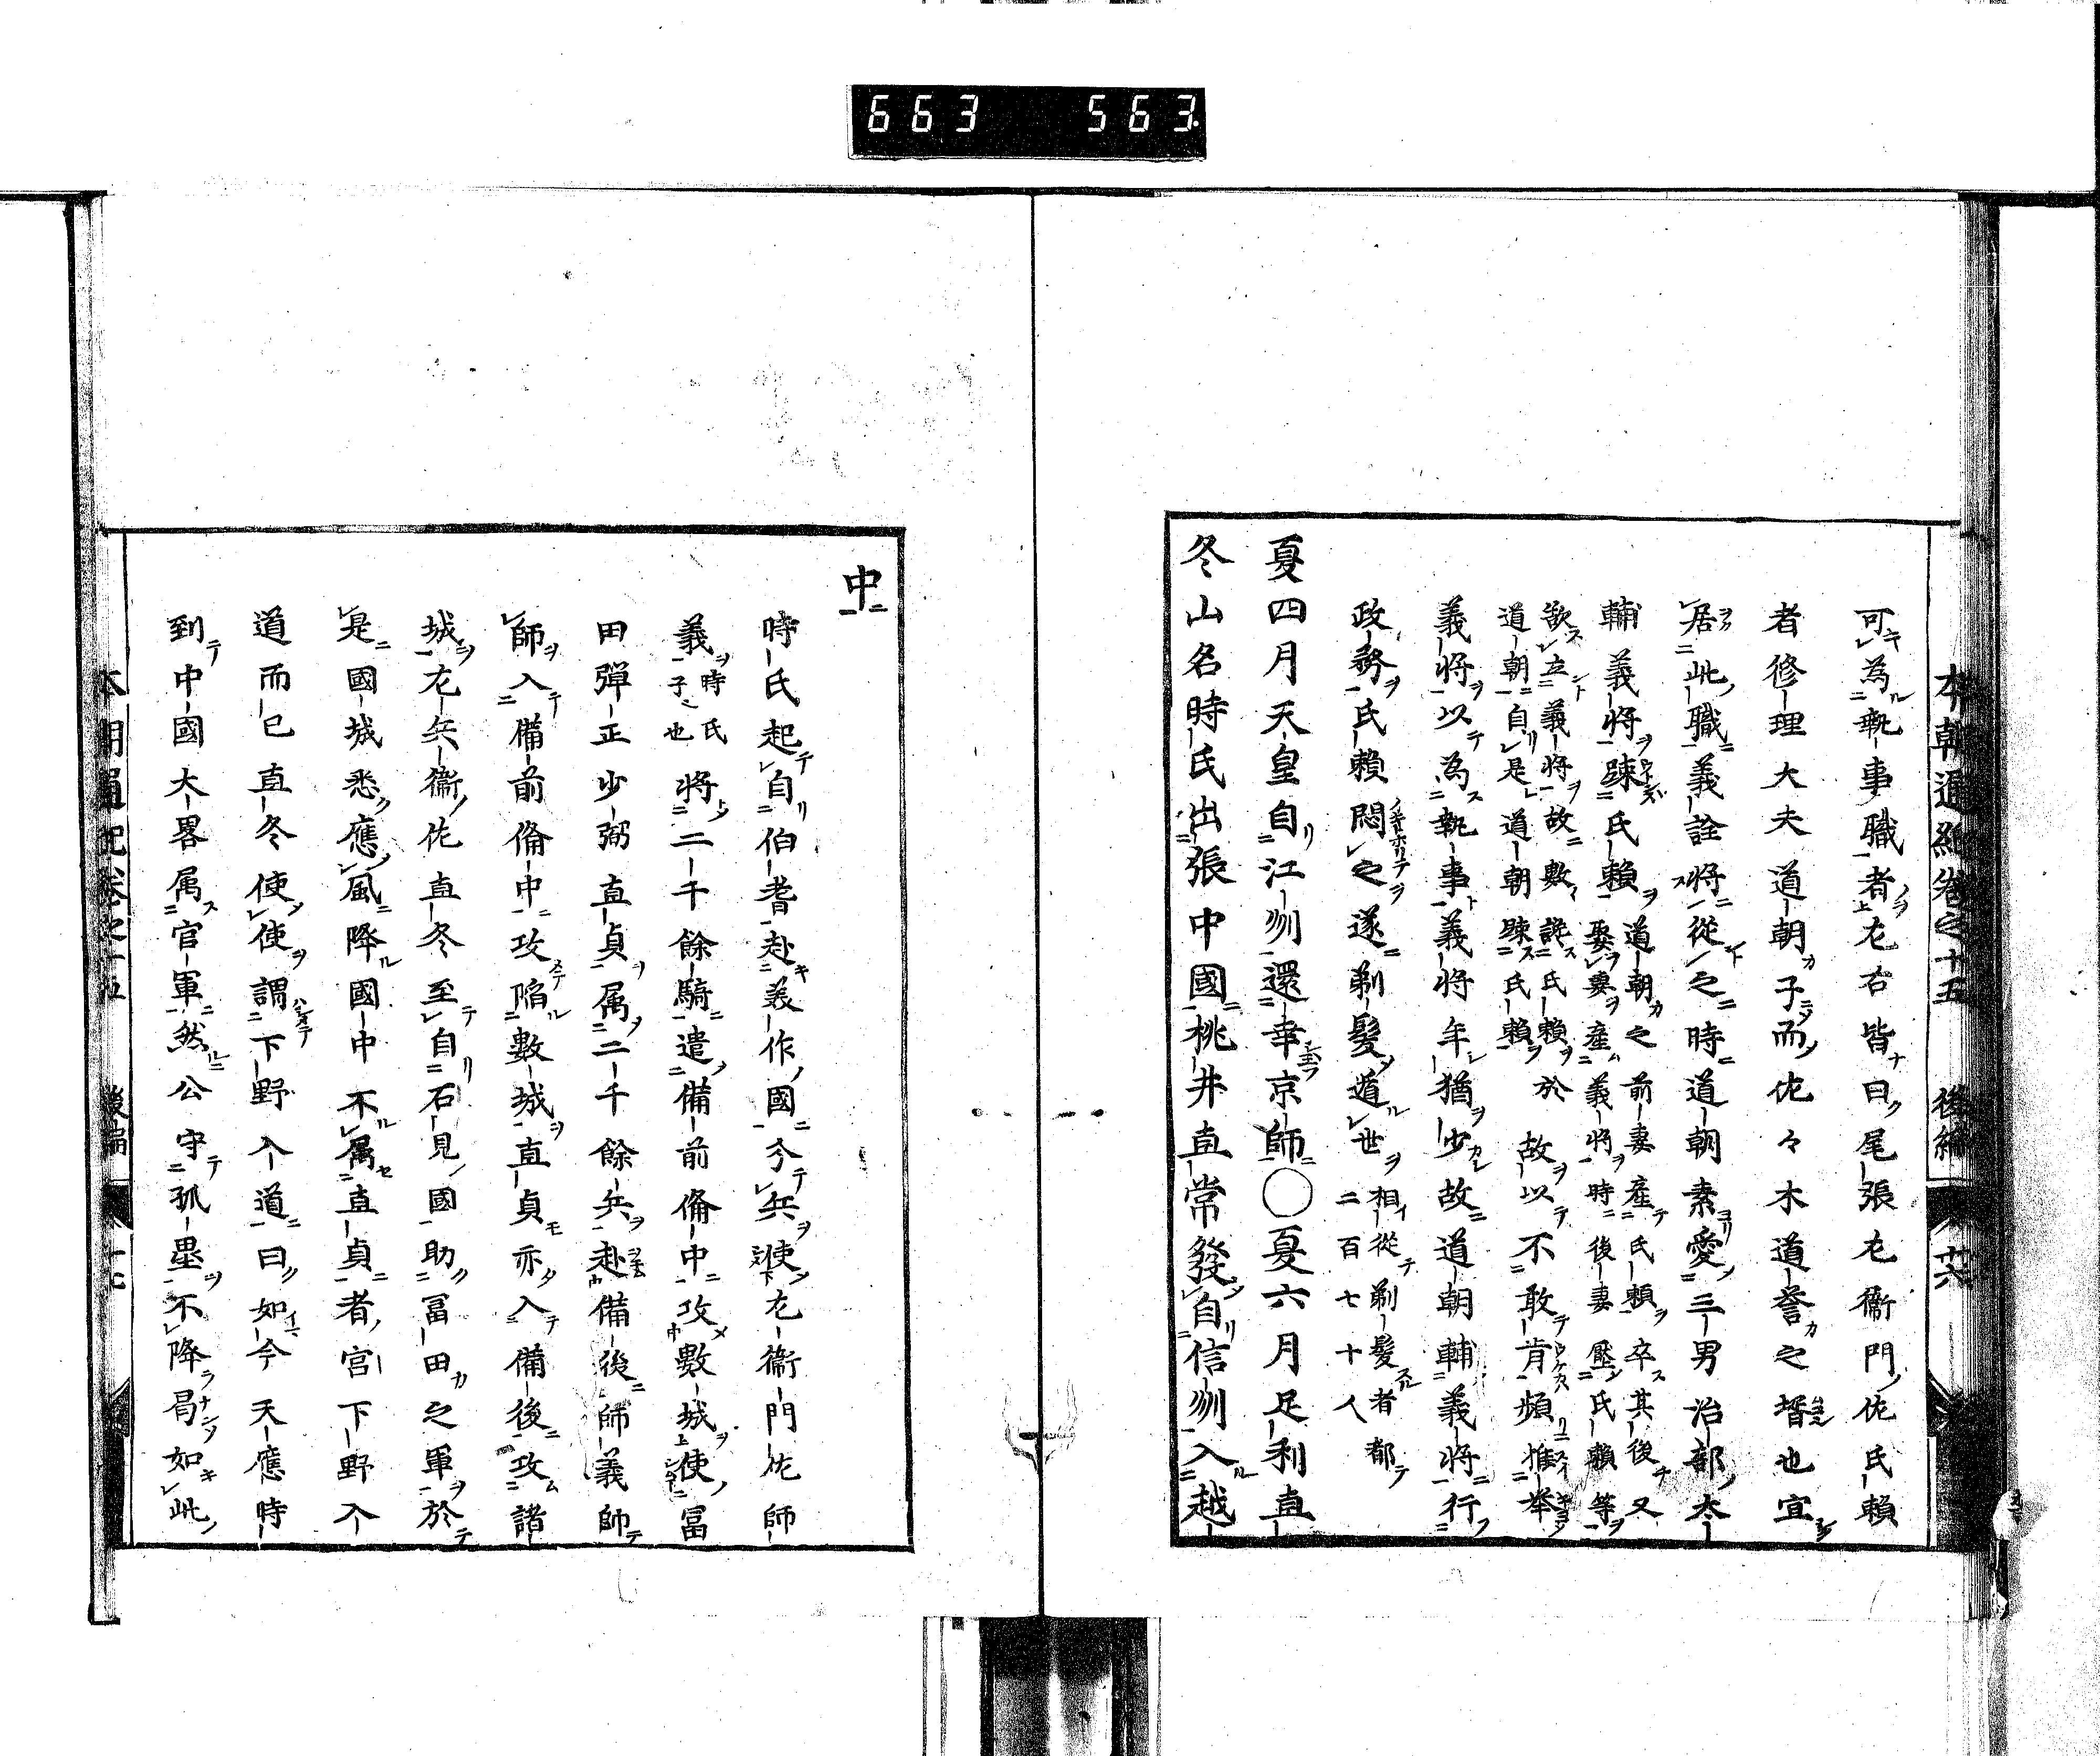 663 563
本朝通紀卷之十五 後編 十六
可為執事職者左右皆曰尾張左衞門佐氏賴
者修理大夫道朝子而佐々木道誉之壻也宜
居此職義詮將從之時道朝素愛三男治部太
輔義將踈氏賴道朝之前妻産氏賴卒其後又
娶妻産義將時後妻壓氏賴等
欲立義將故數讒氏賴於
道朝自是道朝踈氏賴 故以不敢肯頻推举
義將以為執事義將年猶少故道朝輔義將行
政務氏賴悶之遂剃髮遁世相從剃髮者都
二百七十人
夏四月天皇自江刕還幸京師〇夏六月足利直
冬山名時氏出張中國桃井直常發自信刕入越
中
時氏起自伯耆赴美作國分兵使左衞門佐師
義時氏
子也將二千餘騎遣備前備中攻數城使冨
田彈正少弼直貞属二千餘兵赴備後師義帥
師入備前備中攻陥數城直貞亦入備後攻諸
城左兵衞佐直冬至自石見國助冨田之軍於
是國城悉應風降國中不属直貞者宮下野入
道而已直冬使使謂下野入道曰如今天應時
到中國大畧属官軍然公守孤壘不降曷如此
本朝通紀卷之十五 後編 十七